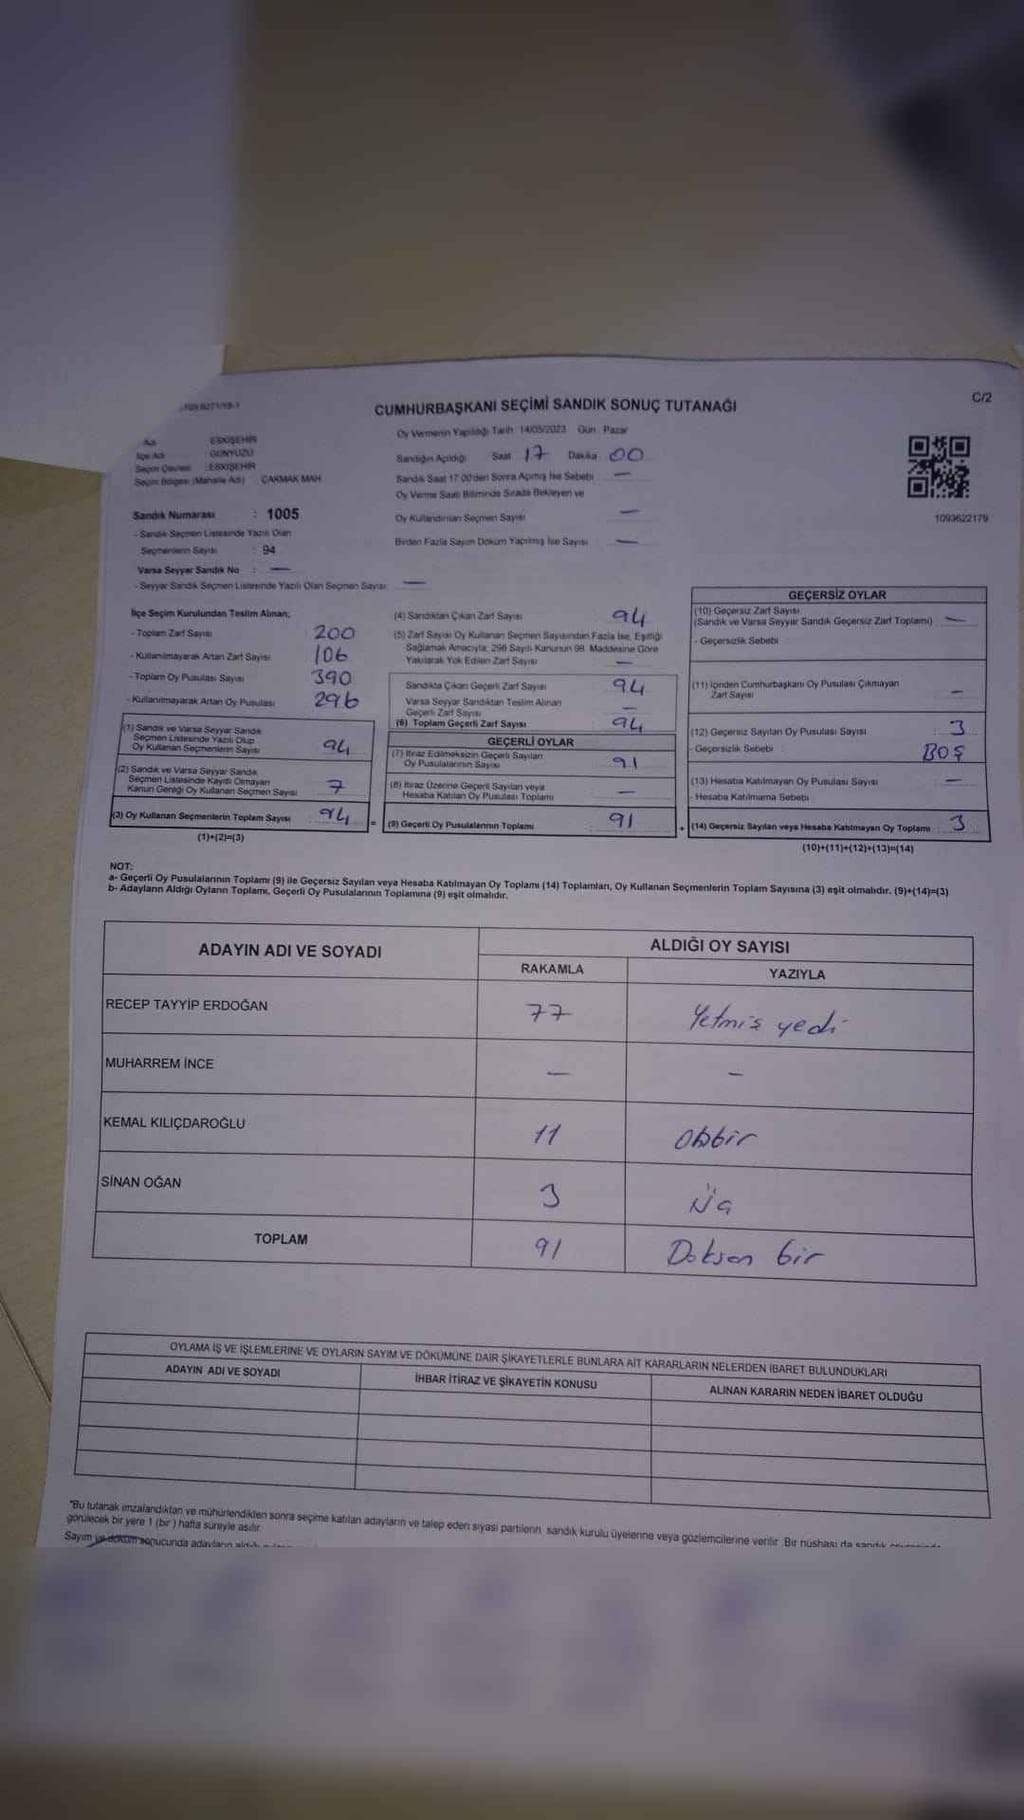 CUMHURBAŞKANI SEÇİMİ SANDIK SONUÇ TUTANAĞI
C/2
Oy Vermenin Yapıldığı Tarih 14/05/2023 Gün Pazar
Adı ESKİŞEHİR
İlçe Adı GÜNYÜZÜ
Seçim Çevresi : ESKİŞEHİR
Seçim Bölgesi (Mahalle Adı) ÇAKMAK MAH.
Sandığın Açıldığı Saat 17 Dakika 00
Sandık Saat 17:00'den Sonra Açılmış İse Sebebi —
Oy Verme Saati Bitiminde Sırada Bekleyen ve
Oy Kullandırılan Seçmen Sayısı —
Birden Fazla Sayım Döküm Yapılmış İse Sayısı —
1093622179
Sandık Numarası : 1005
- Sandık Seçmen Listesinde Yazılı Olan
Seçmenlerin Sayısı : 94
Varsa Seyyar Sandık No : —
- Seyyar Sandık Seçmen Listesinde Yazılı Olan Seçmen Sayısı —
İlçe Seçim Kurulundan Teslim Alınan;
- Toplam Zarf Sayısı 200
- Kullanılmayarak Artan Zarf Sayısı 106
- Toplam Oy Pusulası Sayısı 390
- Kullanılmayarak Artan Oy Pusulası 296
(1) Sandık ve Varsa Seyyar Sandık
Seçmen Listesinde Yazılı Olup
Oy Kullanan Seçmenlerin Sayısı 94
(2) Sandık ve Varsa Seyyar Sandık
Seçmen Listesinde Kayıtlı Olmayan
Kanun Gereği Oy Kullanan Seçmen Sayısı
(3) Oy Kullanan Seçmenlerin Toplam Sayısı 94
(1)+(2)=(3)
(4) Sandıktan Çıkan Zarf Sayısı 94
(5) Zarf Sayısı Oy Kullanan Seçmen Sayısından Fazla İse, Eşitliği
Sağlamak Amacıyla; 298 Sayılı Kanunun 98. Maddesine Göre
Yakılarak Yok Edilen Zarf Sayısı —
Sandıkta Çıkan Geçerli Zarf Sayısı 94
Varsa Seyyar Sandıktan Teslim Alınan
Geçerli Zarf Sayısı —
(6) Toplam Geçerli Zarf Sayısı 94
GEÇERLİ OYLAR
(7) İtiraz Edilmeksizin Geçerli Sayılan
Oy Pusulalarının Sayısı 91
(8) İtiraz Üzerine Geçerli Sayılan veya
Hesaba Katılan Oy Pusulası Toplamı —
= (9) Geçerli Oy Pusulalarının Toplamı 91
GEÇERSİZ OYLAR
(10) Geçersiz Zarf Sayısı
(Sandık ve Varsa Seyyar Sandık Geçersiz Zarf Toplamı) —
- Geçersizlik Sebebi
(11) İçinden Cumhurbaşkanı Oy Pusulası Çıkmayan
Zarf Sayısı —
(12) Geçersiz Sayılan Oy Pusulası Sayısı : 3
- Geçersizlik Sebebi : BOŞ
(13) Hesaba Katılmayan Oy Pusulası Sayısı —
- Hesaba Katılmama Sebebi
+ (14) Geçersiz Sayılan veya Hesaba Katılmayan Oy Toplamı 3
(10)+(11)+(12)+(13)=(14)
NOT:
a- Geçerli Oy Pusulalarının Toplamı (9) ile Geçersiz Sayılan veya Hesaba Katılmayan Oy Toplamı (14) Toplamları, Oy Kullanan Seçmenlerin Toplam Sayısına (3) eşit olmalıdır. (9)+(14)=(3)
b- Adayların Aldığı Oyların Toplamı, Geçerli Oy Pusulalarının Toplamına (9) eşit olmalıdır.
ADAYIN ADI VE SOYADI
ALDIĞI OY SAYISI
RAKAMLA YAZIYLA
RECEP TAYYİP ERDOĞAN 77 Yetmiş yedi
MUHARREM İNCE — —
KEMAL KILIÇDAROĞLU 11 Onbir
SİNAN OĞAN 3 Üç
TOPLAM 91 Doksan bir
OYLAMA İŞ VE İŞLEMLERİNE VE OYLARIN SAYIM VE DÖKÜMÜNE DAİR ŞİKAYETLERLE BUNLARA AİT KARARLARIN NELERDEN İBARET BULUNDUKLARI
ADAYIN ADI VE SOYADI İHBAR İTİRAZ VE ŞİKAYETİN KONUSU ALINAN KARARIN NEDEN İBARET OLDUĞU
"Bu tutanak imzalandıktan ve mühürlendikten sonra seçime katılan adayların ve talep eden siyasi partilerin sandık kurulu üyelerine veya gözlemcilerine verilir. Bir nüshası da sandık
görülecek bir yere 1 (bir) hafta süreyle asılır.
Sayım ve döküm sonucunda adayların aldığı